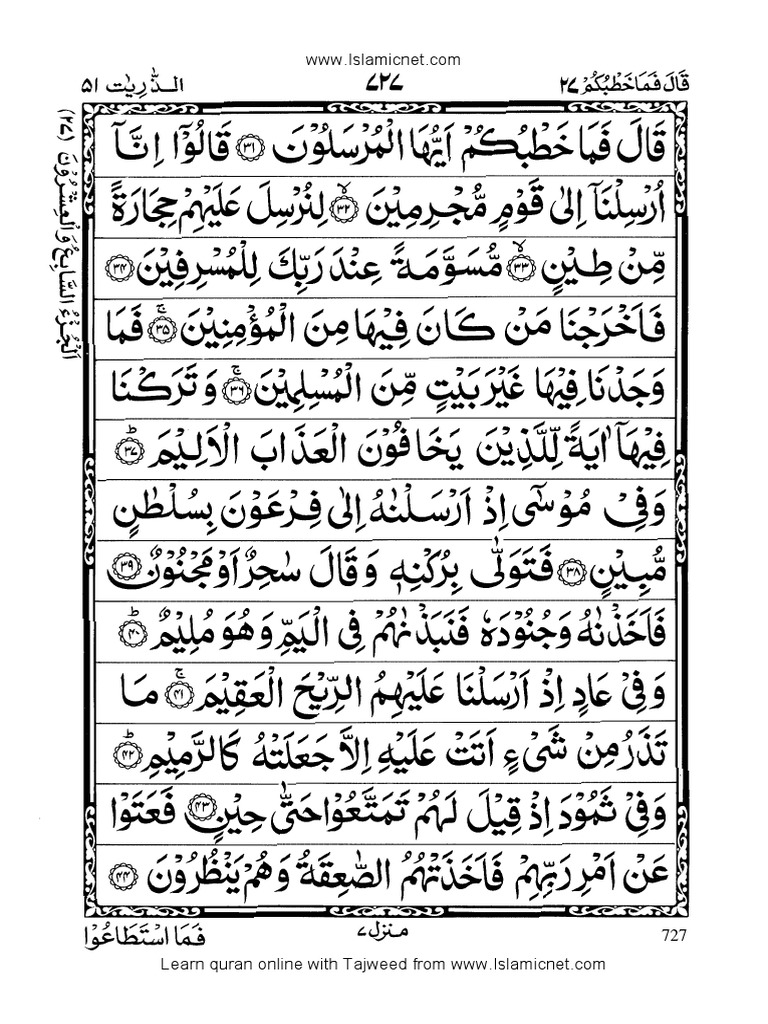 www.Islamicnet.com
قَالَ فَمَا خَطْبُكُمْ ٢٧ ٧٢٧ الذّٰرِيٰت ٥١
قَالَ فَمَا خَطْبُكُمْ اَيُّهَا الْمُرْسَلُوْنَ ﴿٣١﴾ قَالُوْٓا اِنَّآ
اُرْسِلْنَآ اِلٰى قَوْمٍ مُّجْرِمِيْنَ ۙ﴿٣٢﴾ لِنُرْسِلَ عَلَيْهِمْ حِجَارَةً
مِّنْ طِيْنٍ ۙ﴿٣٣﴾ مُّسَوَّمَةً عِنْدَ رَبِّكَ لِلْمُسْرِفِيْنَ ﴿٣٤﴾
فَاَخْرَجْنَا مَنْ كَانَ فِيْهَا مِنَ الْمُؤْمِنِيْنَ ۚ﴿٣٥﴾ فَمَا
وَجَدْنَا فِيْهَا غَيْرَ بَيْتٍ مِّنَ الْمُسْلِمِيْنَ ۚ﴿٣٦﴾ وَتَرَكْنَا
فِيْهَآ اٰيَةً لِّلَّذِيْنَ يَخَافُوْنَ الْعَذَابَ الْاَلِيْمَ ؕ﴿٣٧﴾
وَفِيْ مُوْسٰٓى اِذْ اَرْسَلْنٰهُ اِلٰى فِرْعَوْنَ بِسُلْطٰنٍ
مُّبِيْنٍ ﴿٣٨﴾ فَتَوَلّٰى بِرُكْنِهٖ وَقَالَ سٰحِرٌ اَوْ مَجْنُوْنٌ ﴿٣٩﴾
فَاَخَذْنٰهُ وَجُنُوْدَهٗ فَنَبَذْنٰهُمْ فِى الْيَمِّ وَهُوَ مُلِيْمٌ ؕ﴿٤٠﴾
وَفِيْ عَادٍ اِذْ اَرْسَلْنَا عَلَيْهِمُ الرِّيْحَ الْعَقِيْمَ ۚ﴿٤١﴾ مَا
تَذَرُ مِنْ شَيْءٍ اَتَتْ عَلَيْهِ اِلَّا جَعَلَتْهُ كَالرَّمِيْمِ ؕ﴿٤٢﴾
وَفِيْ ثَمُوْدَ اِذْ قِيْلَ لَهُمْ تَمَتَّعُوْا حَتّٰى حِيْنٍ ﴿٤٣﴾ فَعَتَوْا
عَنْ اَمْرِ رَبِّهِمْ فَاَخَذَتْهُمُ الصّٰعِقَةُ وَهُمْ يَنْظُرُوْنَ ﴿٤٤﴾
اَلْجُزْءُ السَّابِعُ وَالْعِشْرُوْنَ (٢٧)
727 منزل ٧ فَمَا اسْتَطَاعُوْا
Learn quran online with Tajweed from www.Islamicnet.com